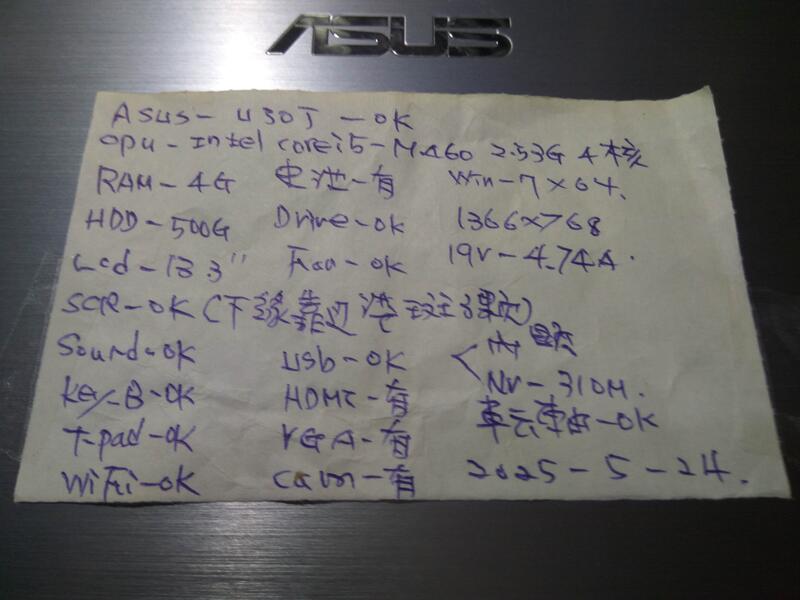 ASUS
ASUS- U30J -OK
cpu-Intel corei5-M460 2.53G 4核
RAM-4G 電池-有 Win-7x64.
HDD-500G Drive-OK 1366x768
Lcd-13.3" Fan-OK 19V-4.74A.
SCR-OK(下緣靠近
Sound-OK usb-OK <內顯
Key-B-OK HDMI-有 NV-310M.
T-pad-OK VGA-有 -OK
WiFi-OK cam-有 2025-5-24.